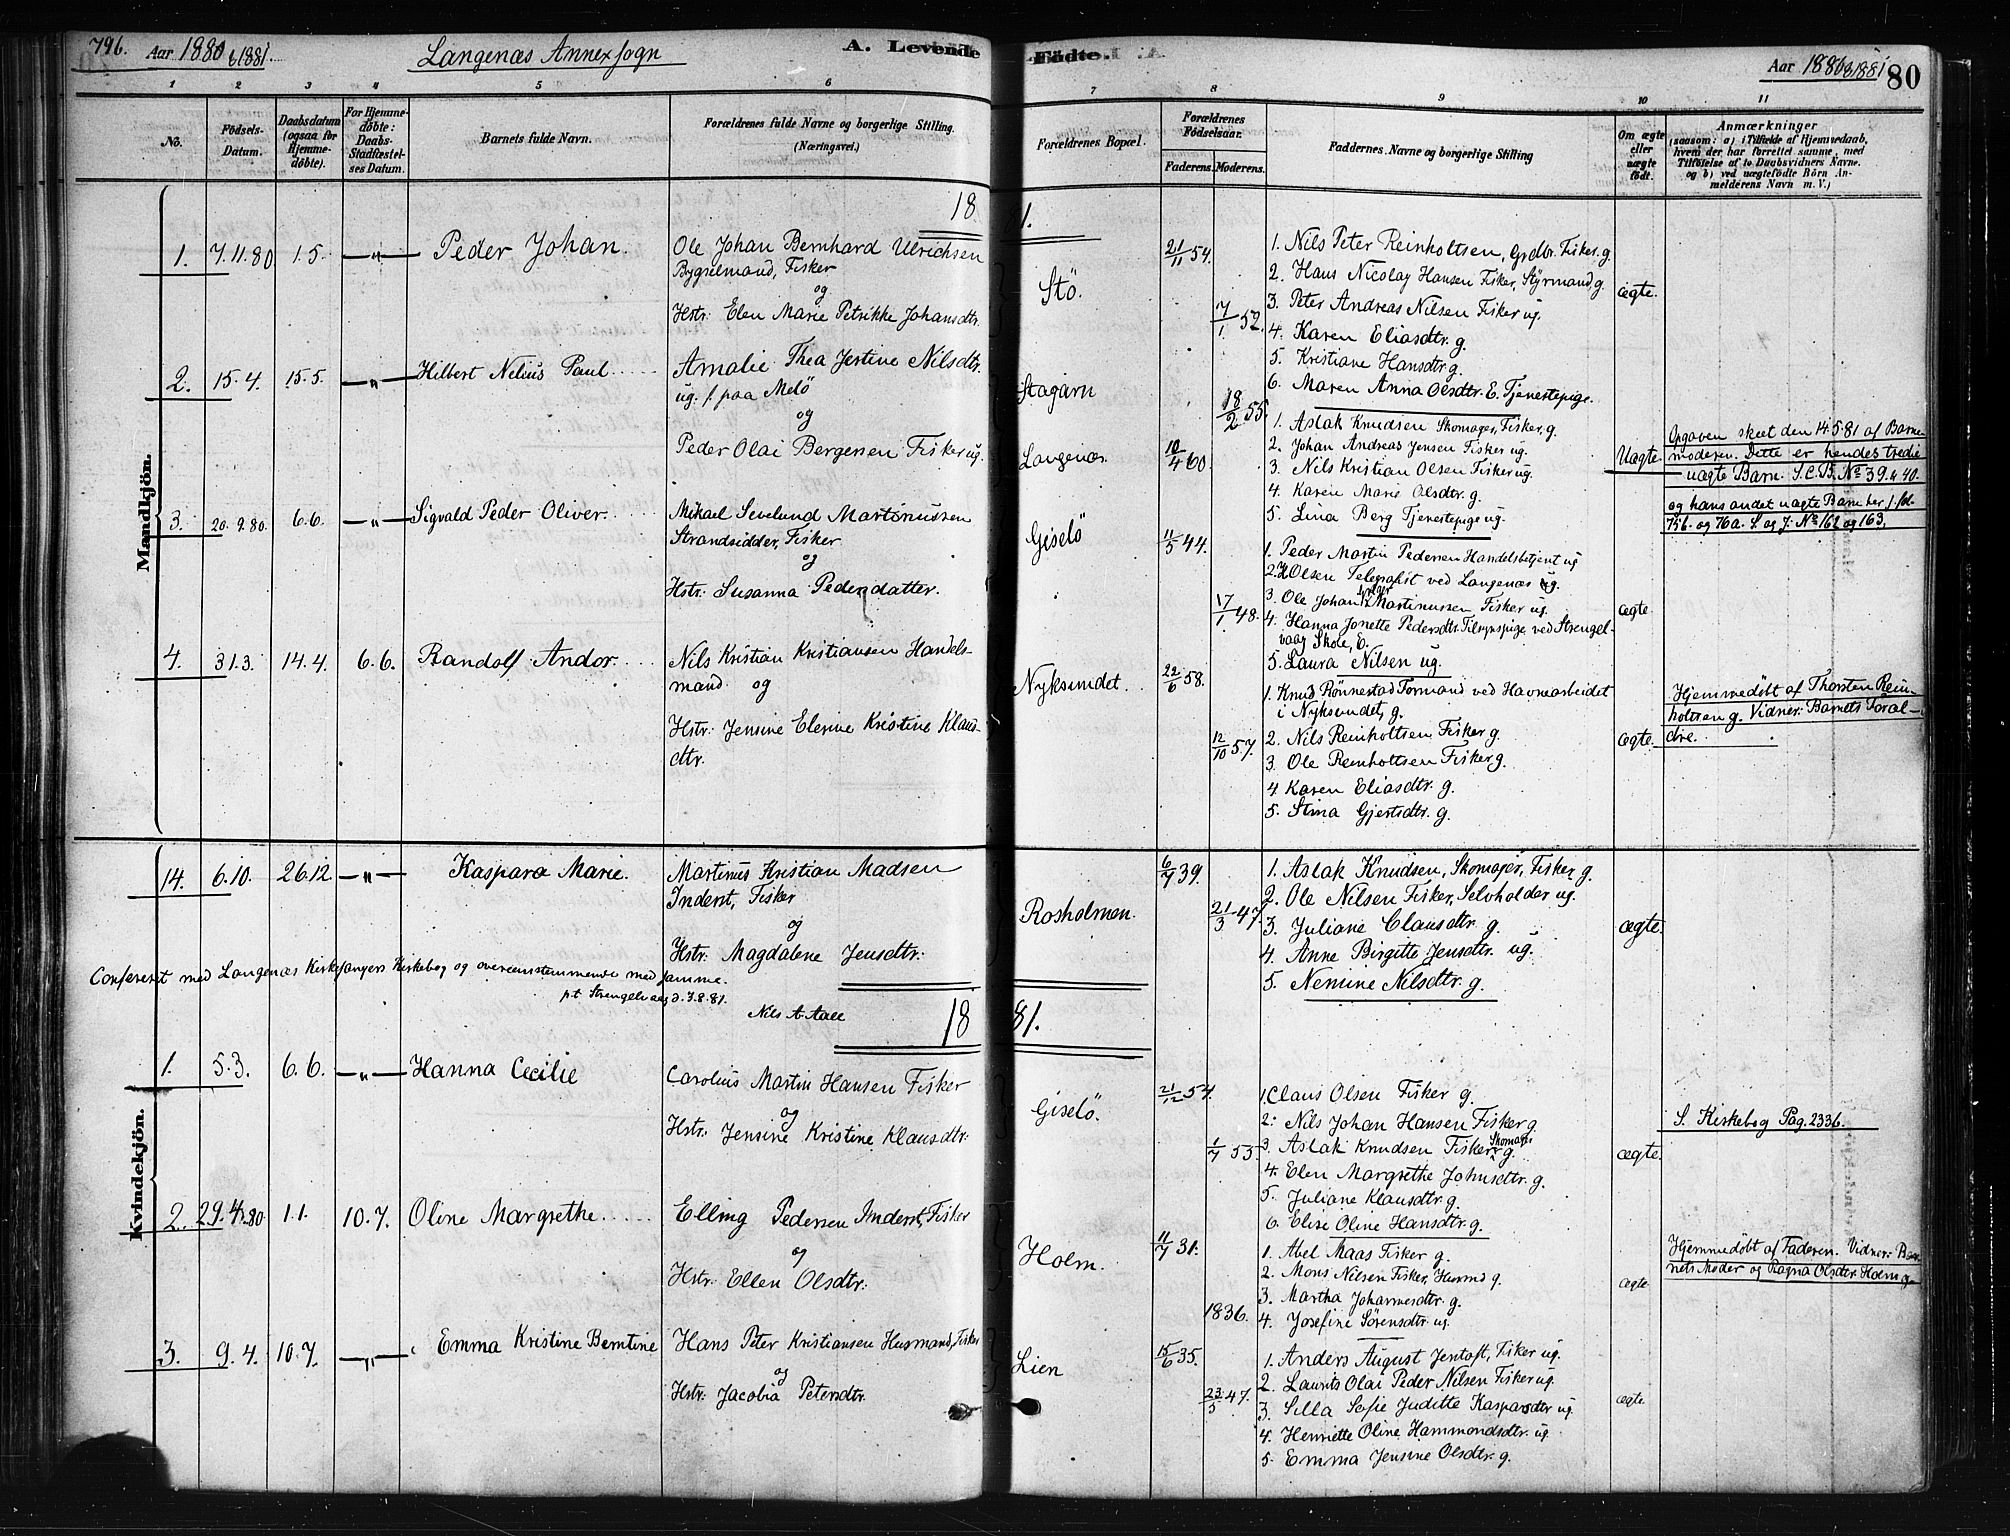 796.
Aar 1880 & 1881.
Langenæs Annexsogn
A. Levende
Födte.
Aar 1880 & 1881
80
1 2 3 4 5 6 7 8 9 10 11
No.
Födsels-Datum.
Daabsdatum (ogsaa for Hjemmedöbte).
For Hjemmedöbte: Daabs-Stadfæstelses Datum.
Barnets fulde Navn.
Forældrenes fulde Navne og borgerlige Stilling. (Næringsvei.)
Forældrenes Bopæl.
Forældrenes Födselsaar.
Faderens. Moderens.
Faddernes Navne og borgerlige Stilling
Om ægte eller uægte födt.
Anmærkninger
(saasom: a) i Tilfælde af Hjemmedaab, hvem der har forrettet samme, med Tilföielse af to Daabsvidners Navne, og b) ved uægtefödte Börn Anmelderens Navn m. V.)
Mandkjön.
1881.
1. 7.11.80 1.5. —"— Peder Johan.
Ole Johan Bernhard Ulrichsen
Bygselmand, Fisker
og
Hstr: Elen Marie Petrikke Johansdtr.
Stö.
21/11 54.
7/1 52.
1. Nils Peter Reinholtsen, Grdbr. Fisker. g.
2. Hans Nicolay Hansen Fisker, Styrmand, g.
3. Peter Andreas Nilsen Fisker ug.
4. Karen Eliasdtr. g.
5. Kristiane Hansdtr. g.
6. Maren Anna Olsdtr. E. Tjenestepige.
ægte.
2. 15.4. 15.5. —"— Hilbert Nelius Paul
Amalie Thea Jestine Nilsdtr.
ug. f. paa Melö
og
Peder Olai Bergesen Fisker ug.
Stagarn
Langenæs
18/2 55.
10/4 60.
1. Aslak Knudsen Skomager, Fisker, g.
2. Johan Andreas Jensen Fisker ug.
3. Nils Kristian Olsen Fisker ug.
4. Karen Marie Olsdtr. g.
5. Lina Berg Tjenestepige ug.
Uægte.
Opgaven skeet den 14.5.81 af Barnemoderen. Dette er hendes tredie
uægte Barn. S.C.B. № 39 & 40.
og hans andet uægte Barn her f. fol.
75b. og 76a. L og J. № 162 og 163.
3. 20.9.80. 6.6. —"— Sigvald Peder Oliver
Mikael Sevelund Martinussen
Strandsidder, Fisker
og
Hstr: Susanna Pedersdatter.
Giselö
11/5 44.
17/1 48.
1. Peder Martin Pedersen Handelsbetjent ug
2. H Olsen Telegrafist ved Langenæs ug.
3. Ole Johan Martinussen Fisker ug.
4. Hanna Jonette Pedersdtr. Tilsynspige ved Strengelvaag Skole, E.
5. Laura Nilsen ug.
ægte.
4. 31.3. 14.4. 6.6. Randolf Andor
Nils Kristian Kristiansen Handelsmand og
Hstr: Jensine Elenne Kristine Klausdtr.
Nyksundet.
22/6 58.
12/10 57.
1. Knud Rönnestad Formand ved Havnearbeidet
i Nyksundet, g.
2. Nils Reinholtsen Fisker g.
3. Ole Reinholtsen Fisker g.
4. Karen Eliasdtr. g.
5. Stina Gjertsdtr. g.
ægte.
Hjemmedöbt af Thorsten Reinholtsen g. Vidner: Barnets Forældre.
14. 6.10. 26.12 —"— Kaspara Marie.
Martinus Kristian Madsen
Inderst, Fisker
og
Hstr: Magdalene Jensdtr.
Rosholmen.
6/7 39.
21/3 47.
1. Aslak Knudsen, Skomager, Fisker g.
2. Ole Nilsen Fisker, Selvholder ug.
3. Juliane Clausdtr. g.
4. Anne Birgitte Jensdtr. ug.
5. Nemine Nilsdtr. g.
ægte.
Confereret med Langenæs Kirkesangers Kirkebog og overensstemmende med samme.
pt Strengelvaag d. 7.8.81.
Nils A. Aall
1881.
Kvindekjön.
1. 5.3. 6.6. —"— Hanna Cecilie
Carolius Martin Hansen Fisker
og
Hstr: Jensine Kristine Klausdtr:
Giselö.
21/12 54.
1/7 53.
1. Claus Olsen Fisker g.
2. Nils Johan Hansen Fisker g.
3. Aslak Knudsen Fisker, Skomager g.
4. Elen Margrethe Johnsdtr. g.
5. Juliane Klausdtr. g.
6. Elise Oline Hansdtr. g.
ægte.
S. Kirkebog Pag. 2336.
2. 29.4.80 1.1. 10.7. Oline Margrethe
Elling Pedersen Inderst, Fisker
og
Hstr: Ellen Olsdtr:
Holm.
11/7 31.
1836.
1. Abel Maas Fisker g.
2. Mons Nilsen Fisker, Husmd g.
3. Martha Johannesdtr. g.
4. Josefine Sörensdtr. ug.
ægte.
Hjemmedöbt af Faderen. Vidner: Barnets Moder og Ragna Olsdtr. Holm g.
3. 9.4. 10.7. —"— Emma Kristine Berntine
Hans Peter Kristiansen Husmand, Fisker
og
Hstr: Jacobia Petersdtr.
Lien
15/6 35.
23/5 47.
1. Anders August Jentoft, Fisker ug.
2. Laurits Olai Peder Nilsen Fisker ug.
3. Silla Sofie Juditte Kaspersdtr ug.
4. Henriette Oline Hammondsdtr. ug.
5. Emma Jensine Olsdtr. g.
ægte.